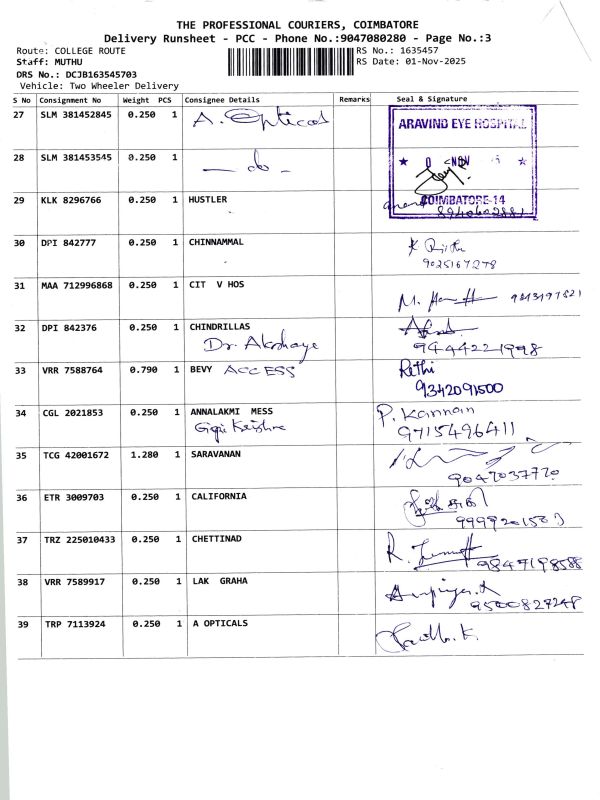 THE PROFESSIONAL COURIERS, COIMBATORE
Delivery Runsheet - PCC - Phone No.:9047080280 - Page No.:3
Route: COLLEGE ROUTE RS No.: 1635457
Staff: MUTHU RS Date: 01-Nov-2025
DRS No.: DCJB163545703
Vehicle: Two Wheeler Delivery
S No Consignment No Weight PCS Consignee Details Remarks Seal & Signature
27 SLM 381452845 0.250 1 A. Opticals
ARAVIND EYE HOSPITAL
28 SLM 381453545 0.250 1 — do —
NOV
COIMBATORE-14
29 KLK 8296766 0.250 1 HUSTLER
30 DPI 842777 0.250 1 CHINNAMMAL
9025167278
31 MAA 712996868 0.250 1 CIT V HOS
32 DPI 842376 0.250 1 CHINDRILLAS
Dr. Akshaye 9444221998
33 VRR 7588764 0.790 1 BEVY ACCESS Rethi
9342091500
34 CGL 2021853 0.250 1 ANNALAKMI MESS P. Kannan
9715496411
35 TCG 42001672 1.280 1 SARAVANAN
9047037770
36 ETR 3009703 0.250 1 CALIFORNIA
37 TRZ 225010433 0.250 1 CHETTINAD
9847198588
38 VRR 7589917 0.250 1 LAK GRAHA
9500827248
39 TRP 7113924 0.250 1 A OPTICALS